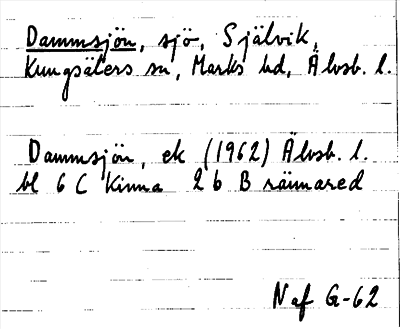 Dammsjön, sjö, Självik,
Kungsäters sn, Marks hd, Älvsb. l.
Dammsjön, ek (1962) Älvsb. l.
bl 6 C Kinna 2 b B räimared
Naf G-62